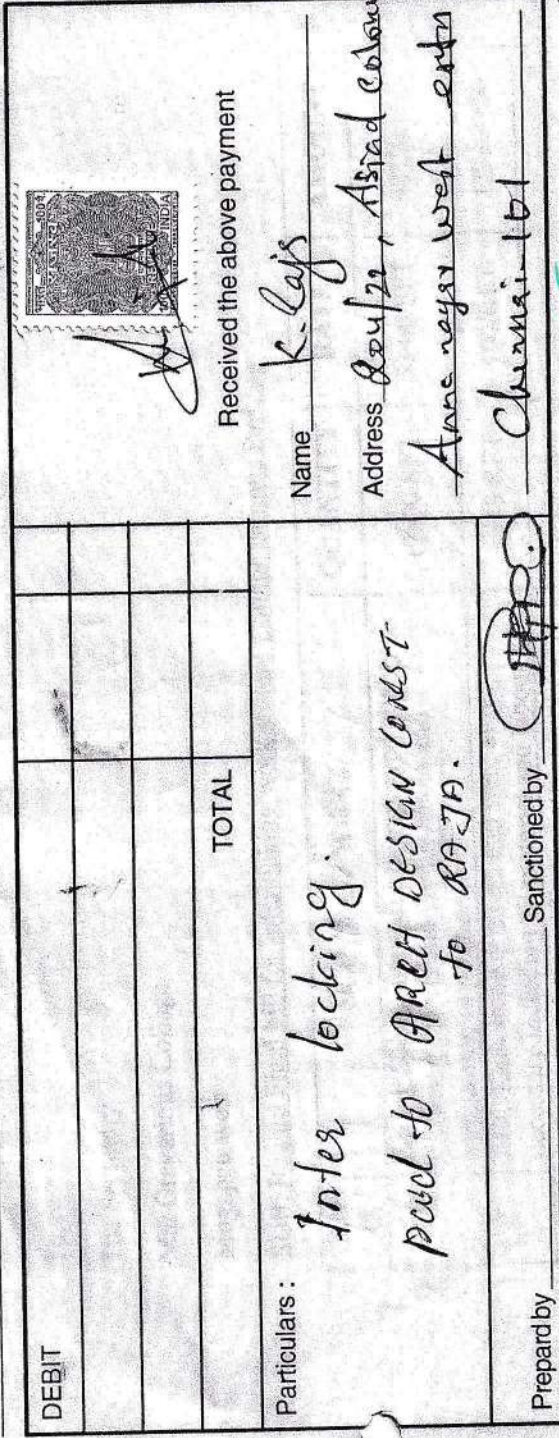 DEBIT
TOTAL
Particulars :
Inter locking.
paid to ARCH DESIGN CONST
to RAJA.
Prepard by
Sanctioned by
Received the above payment
Name K. Raja
Address 204/22, Asiad Colony
Anna nagar West extn
Chennai-101